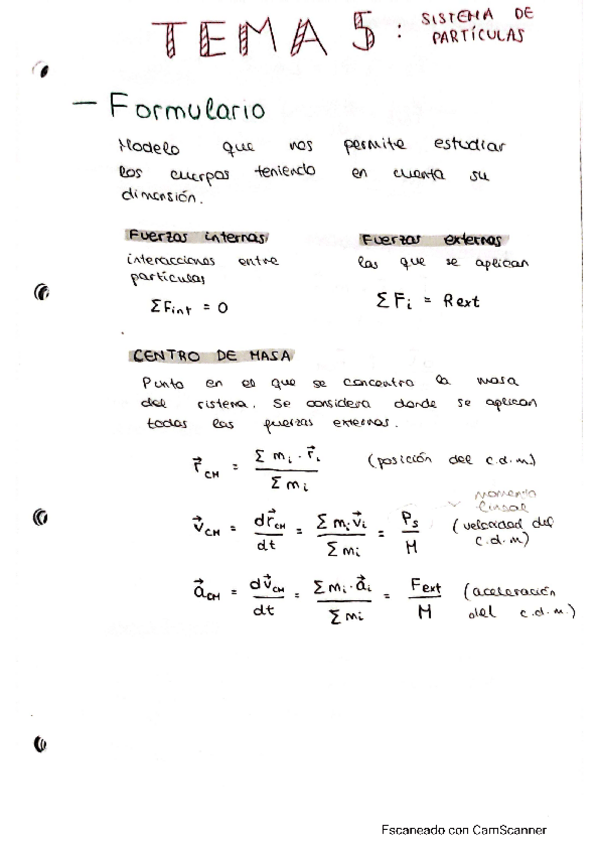 TEMA 5: SISTEMA DE PARTÍCULAS
— Formulario
Modelo que nos permite estudiar
los cuerpos teniendo en cuenta su
dimensión.
Fuerzas internas
interacciones entre
partículas
ΣFint = 0
Fuerzas externas
las que se aplican
ΣFi = Rext
CENTRO DE MASA
Punto en el que se concentra la masa
del sistema. Se considera donde se aplican
todas las fuerzas externas.
r⃗CM = Σ mi · r⃗i / Σ mi (posición del c.d.m)
Momento lineal
v⃗CM = dr⃗CM / dt = Σ mi v⃗i / Σ mi = Ps / M (velocidad del c.d.m)
a⃗CM = dv⃗CM / dt = Σ mi · a⃗i / Σ mi = Fext / M (aceleración del c.d.m.)
Escaneado con CamScanner